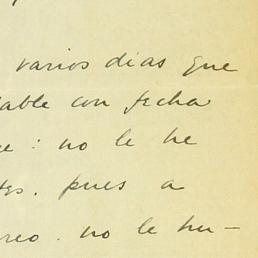 varios dias que
able con fecha
e: no le he
tes. pues a
reo. no le hu-